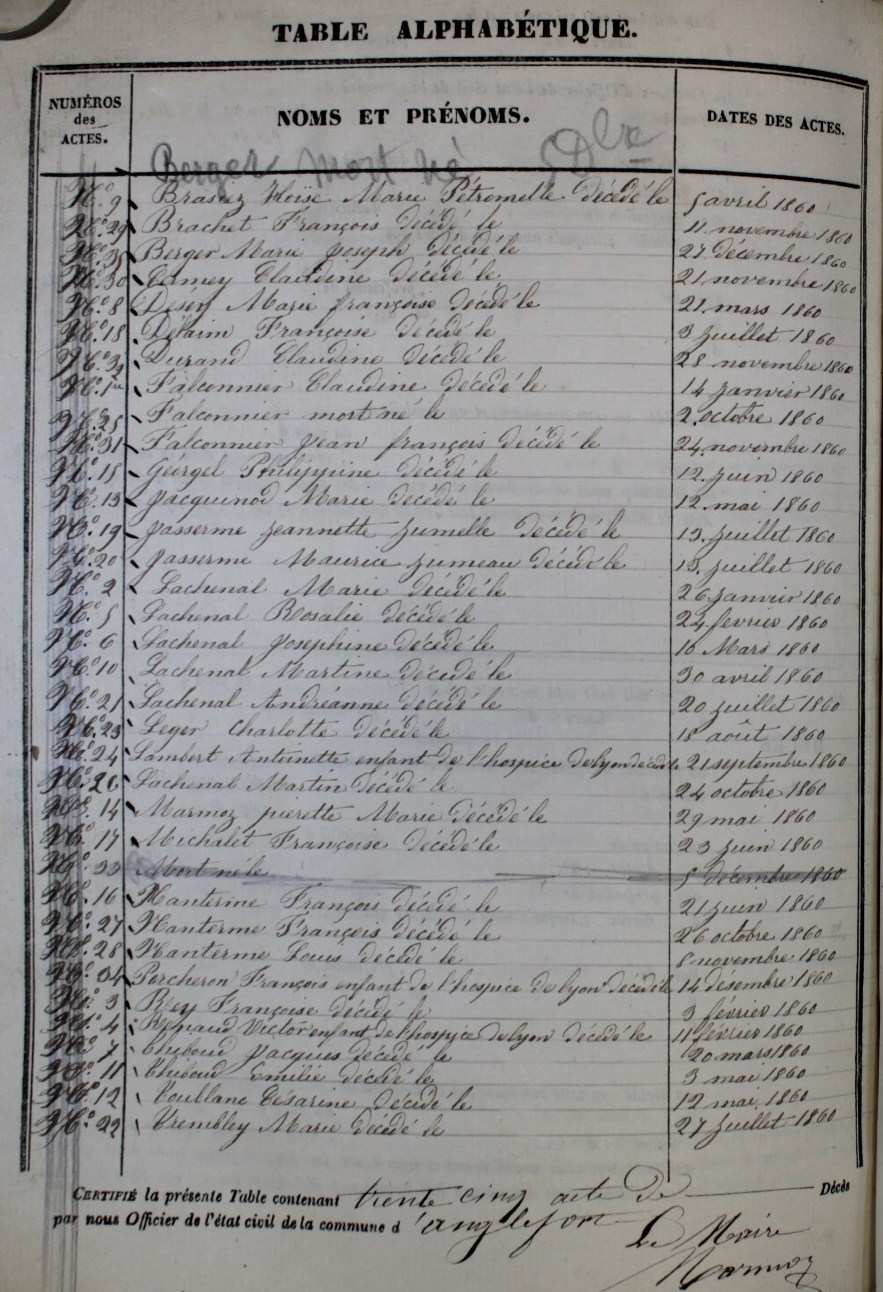 TABLE ALPHABÉTIQUE.
NUMÉROS des ACTES. NOMS ET PRÉNOMS. DATES DES ACTES.
Berger mort né
N.° 9 Marie Pétronelle décédé le 5 avril 1860
N.° 29 Brachet François décédé le 11 novembre 1860
N.° 35 Berger Marie Joseph décédé le 27 décembre 1860
N.° 30 Claudine décédé le 21 novembre 1860
N.° 8 Marie françoise décédé le 21 mars 1860
N.° 18 Françoise décédé le 3 Juillet 1860
N.° 32 Durand Claudine décédé le 28 novembre 1860
N.° 1er Falconnier Claudine décédé le 14 Janvier 1860
N.° 25 Falconnier mort né le 2 octobre 1860
N.° 31 Falconnier Jean françois décédé le 24 novembre 1860
N.° 15 Philippine décédé le 12 Juin 1860
N.° 13 Jacquinod Marie décédé le 12 mai 1860
N.° 19 Jasserme Jeannette Jumelle décédé le 13 Juillet 1860
N.° 20 Jasserme Maurice Jumeau décédé le 13 Juillet 1860
N.° 2 Lachenal Marie décédé le 26 Janvier 1860
N.° 5 Lachenal Rosalie décédé le 24 fevrier 1860
N.° 6 Lachenal Josephine décédé le 10 Mars 1860
N.° 10 Lachenal Martine décédé le 30 avril 1860
N.° 21 Lachenal Andréanne décédé le 20 Juillet 1860
N.° 23 Leger Charlotte décédé le août 1860
N.° 24 Lambert Antoinette enfant de l'hospice de lyon décédé le 21 septembre 1860
N.° 26 Lachenal Martin décédé le 24 octobre 1860
N.° 14 Marmoz pierette Marie décédé le 29 mai 1860
N.° 17 Michalet Françoise décédé le 23 Juin 1860
N.° 33 Mort né le 5 décembre 1860
N.° 16 Nanterme François décédé le 21 Juin 1860
N.° 27 Nanterme François décédé le 26 octobre 1860
N.° 28 Nanterme Louis décédé le 8 novembre 1860
N.° 34 Percheron François enfant de l'hospice de lyon décédé le 14 désembre 1860
N.° 3 Rey Françoise décédé le 3 février 1860
N.° 4 Victor enfant de l'hospice de lyon décédé le 11 février 1860
N.° 7 Thiboud Jacques décédé le 20 mars 1860
N.° 11 Thiboud Emilie décédé le 3 mai 1860
N.° 12 Césarine décédé le 12 mai 1860
N.° 22 Trembley Marie décédé le 27 Juillet 1860
CERTIFIÉ la présente Table contenant trente cinq acte De Décès
par nous Officier de l'état civil de la commune d'anglefort
Le Maire
Marmoz